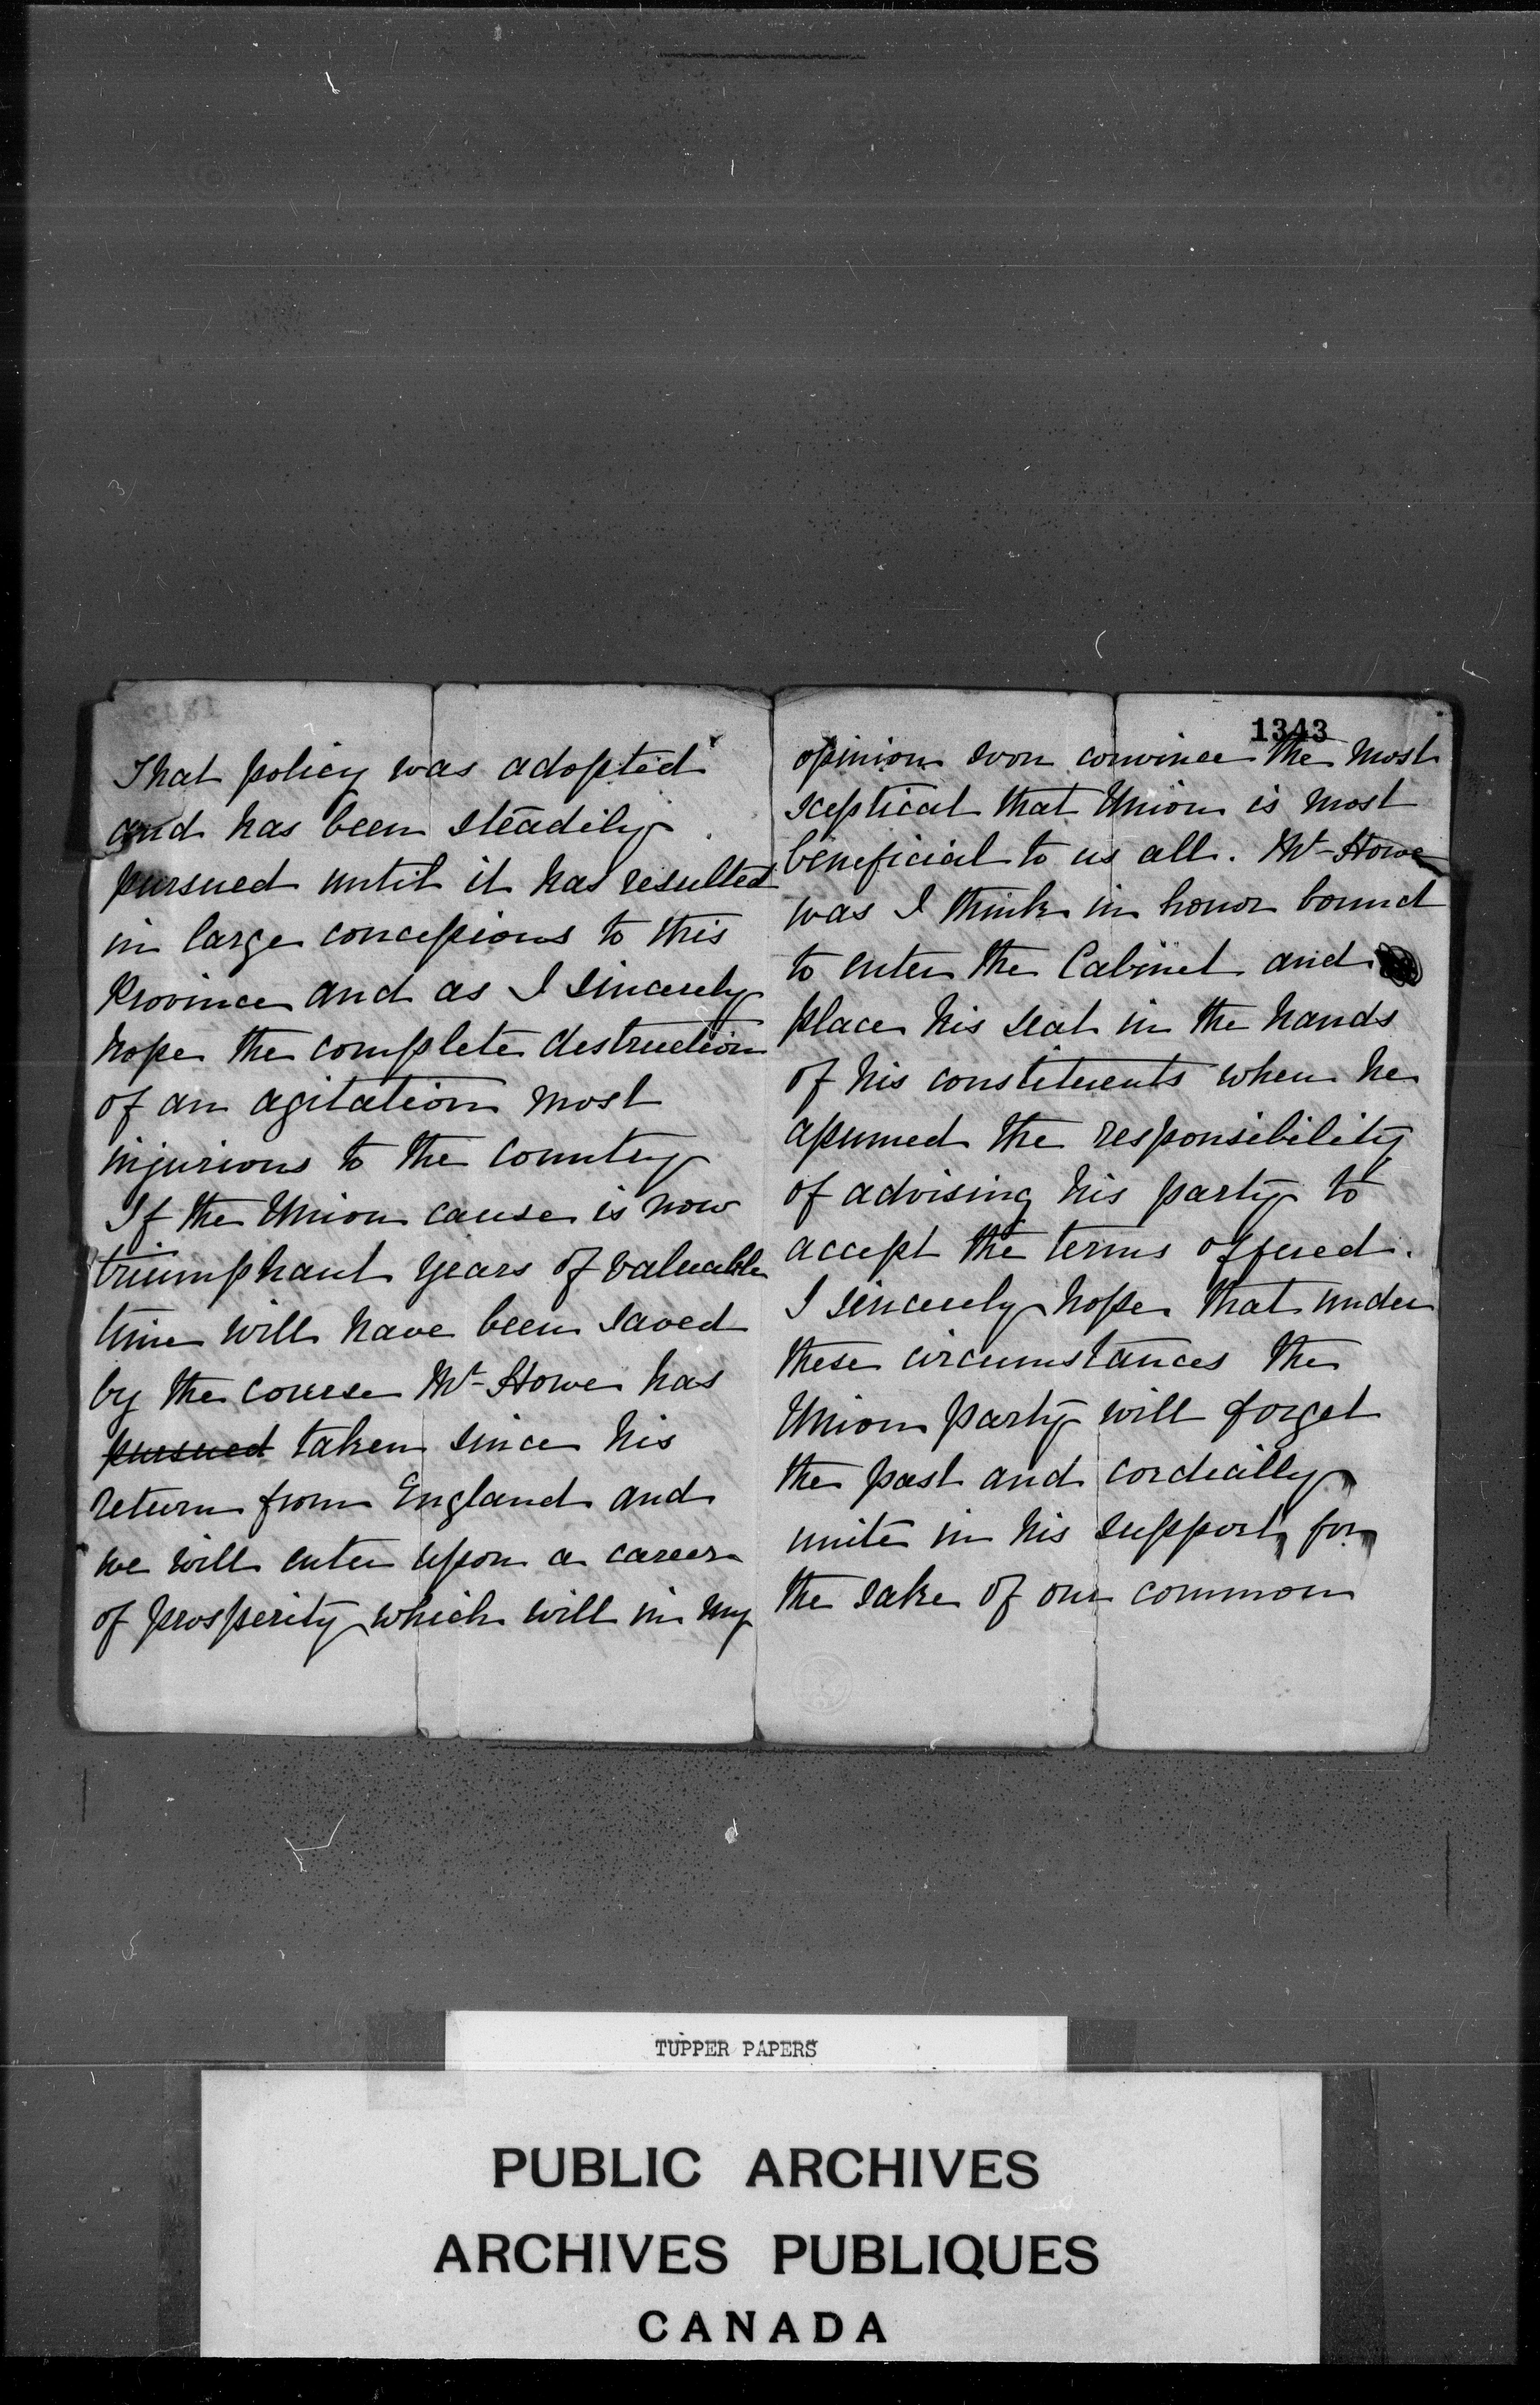 That policy was adopted
and has been steadily
pursued until it has resulted
in large concessions to this
Province and as I sincerely
hope the complete destruction
of an agitation most
injurious to the country
If the Union cause is now
triumphant years of valuable
time will have been saved
by the course Mr Howe has
pursued taken since his
return from England and
we will enter upon a career
of prosperity which will in my
1343
opinion soon convince the most
sceptical that Union is most
beneficial to us all. Mr Howe
was I think in honor bound
to enter the Cabinet and
place his seat in the hands
of his constituents when he
assumed the responsibility
of advising his party to
accept the terms offered.
I sincerely hope that under
these circumstances the
Union party will forget
the past and cordially
unite in his support for
the sake of our common
TUPPER PAPERS
PUBLIC ARCHIVES
ARCHIVES PUBLIQUES
CANADA